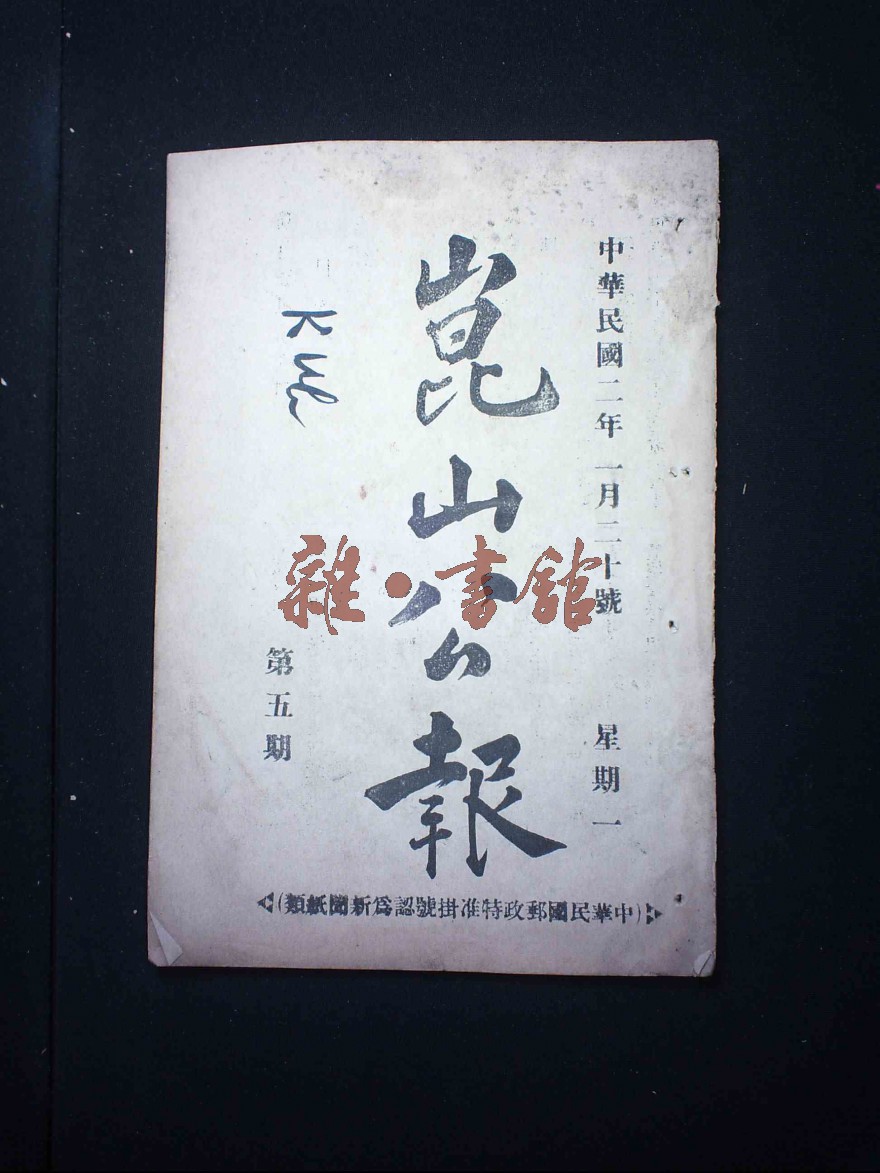 中華民國二年一月二十號 星期一
崑山公報
第五期
(中華民國郵政特准掛號認爲新聞紙類)
雜·書館